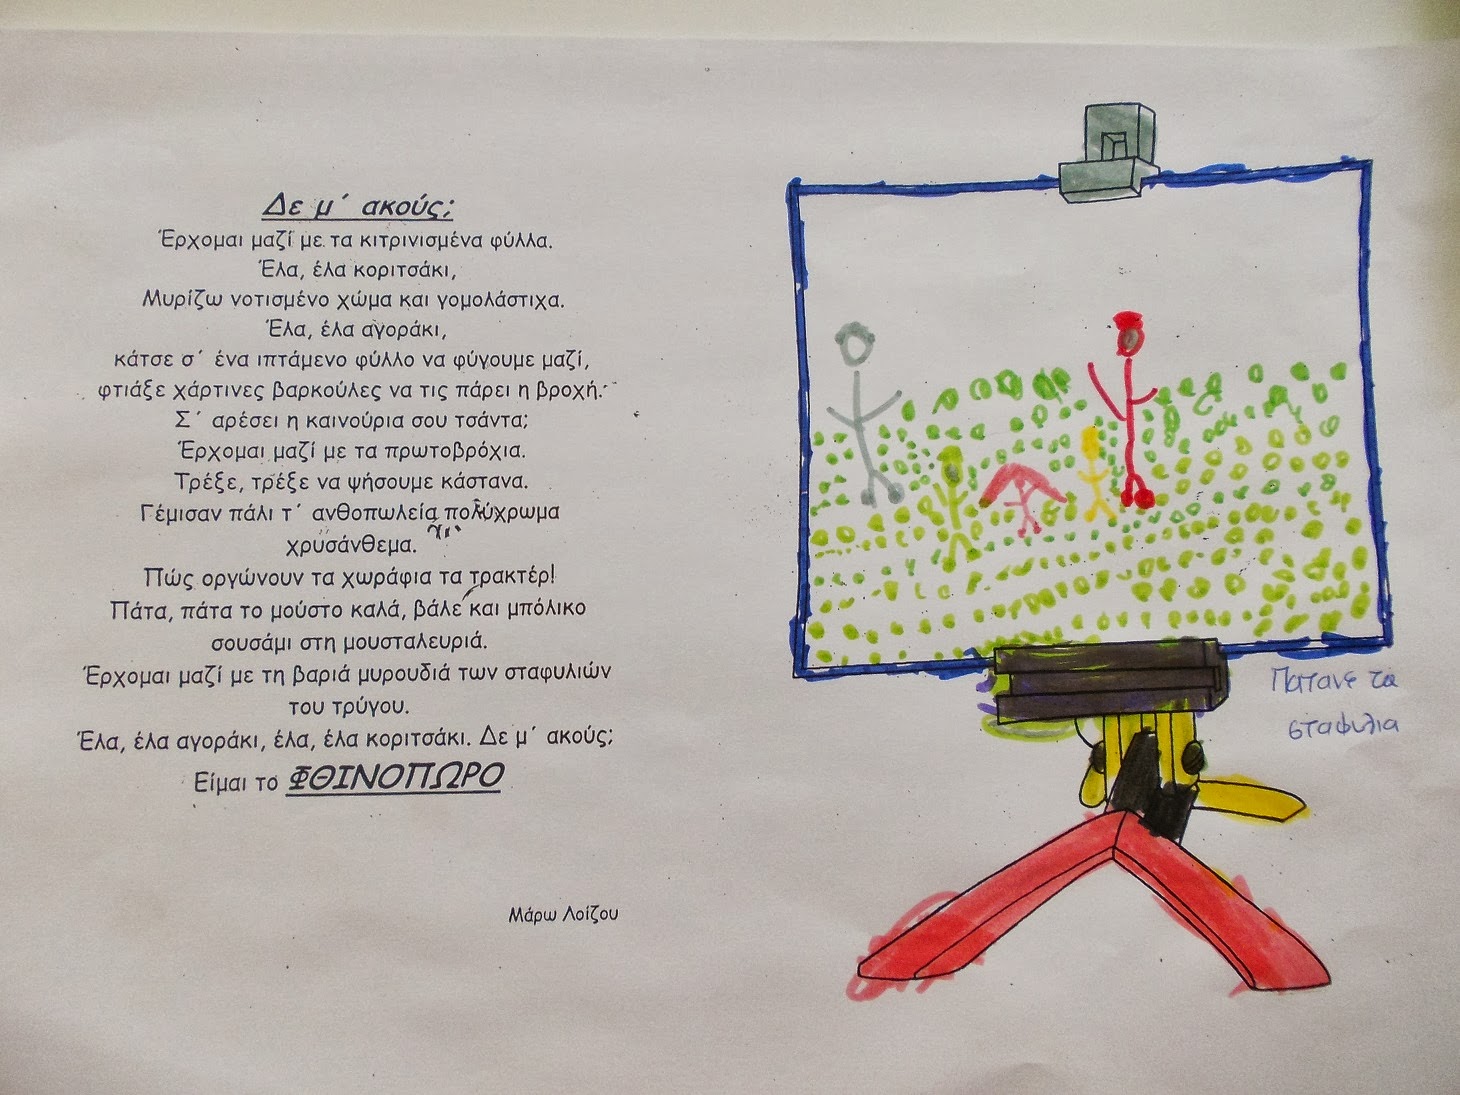 Δε μ΄ ακούς;
Έρχομαι μαζί με τα κιτρινισμένα φύλλα.
Έλα, έλα κοριτσάκι,
Μυρίζω νοτισμένο χώμα και γομολάστιχα.
Έλα, έλα αγοράκι,
κάτσε σ΄ ένα ιπτάμενο φύλλο να φύγουμε μαζί,
φτιάξε χάρτινες βαρκούλες να τις πάρει η βροχή.
Σ΄ αρέσει η καινούρια σου τσάντα;
Έρχομαι μαζί με τα πρωτοβρόχια.
Τρέξε, τρέξε να ψήσουμε κάστανα.
Γέμισαν πάλι τ΄ ανθοπωλεία πολύχρωμα
χρυσάνθεμα.
Πώς οργώνουν τα χωράφια τα τρακτέρ!
Πάτα, πάτα το μούστο καλά, βάλε και μπόλικο
σουσάμι στη μουσταλευριά.
Έρχομαι μαζί με τη βαριά μυρουδιά των σταφυλιών
του τρύγου.
Έλα, έλα αγοράκι, έλα, έλα κοριτσάκι. Δε μ΄ ακούς;
Είμαι το ΦΘΙΝΟΠΩΡΟ
Μάρω Λοίζου
Πατανε τα
σταφυλια